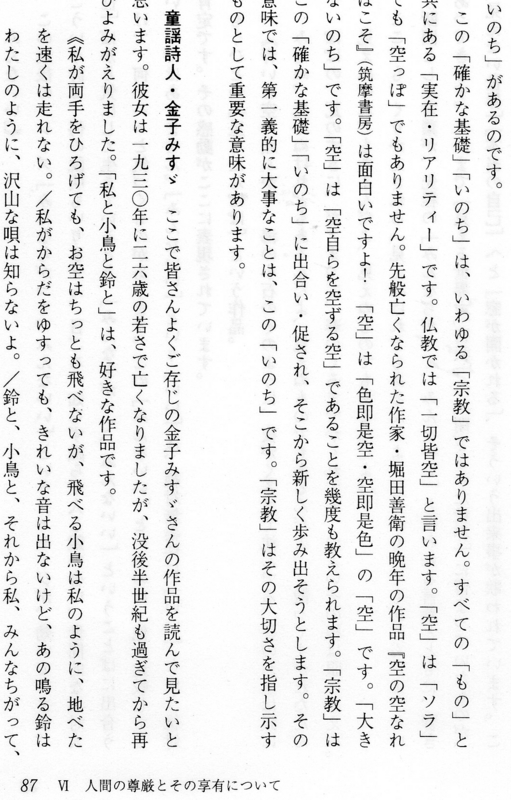 いのち」があるのです。
この「確かな基礎」「いのち」は、いわゆる「宗教」ではありません。すべての「もの」と
共にある「実在・リアリティー」です。仏教では「一切皆空」と言います。「空」は「ソラ」
でも「空っぽ」でもありません。先般亡くなられた作家・堀田善衛の晩年の作品『空の空なれ
ばこそ』（筑摩書房）は面白いですよ！　「空」は「色即是空・空即是色」の「空」です。「大き
ないのち」です。「空」は「空自らを空ずる空」であることを幾度も教えられます。「宗教」は
この「確かな基礎」「いのち」に出合い・促され、そこから新しく歩み出そうとします。その
意味では、第一義的に大事なことは、この「いのち」です。「宗教」はその大切さを指し示す
ものとして重要な意味があります。
童謡詩人・金子みすゞ　ここで皆さんよくご存じの金子みすゞさんの作品を読んで見たいと
思います。彼女は一九三〇年に二六歳の若さで亡くなりましたが、没後半世紀も過ぎてから再
びよみがえりました。「私と小鳥と鈴と」は、好きな作品です。
《私が両手をひろげても、お空はちっとも飛べないが、飛べる小鳥は私のように、地べた
を速くは走れない。／私がからだをゆすっても、きれいな音は出ないけど、あの鳴る鈴は
わたしのように、沢山な唄は知らないよ。／鈴と、小鳥と、それから私、みんなちがって、
87　Ⅵ　人間の尊厳とその享有について